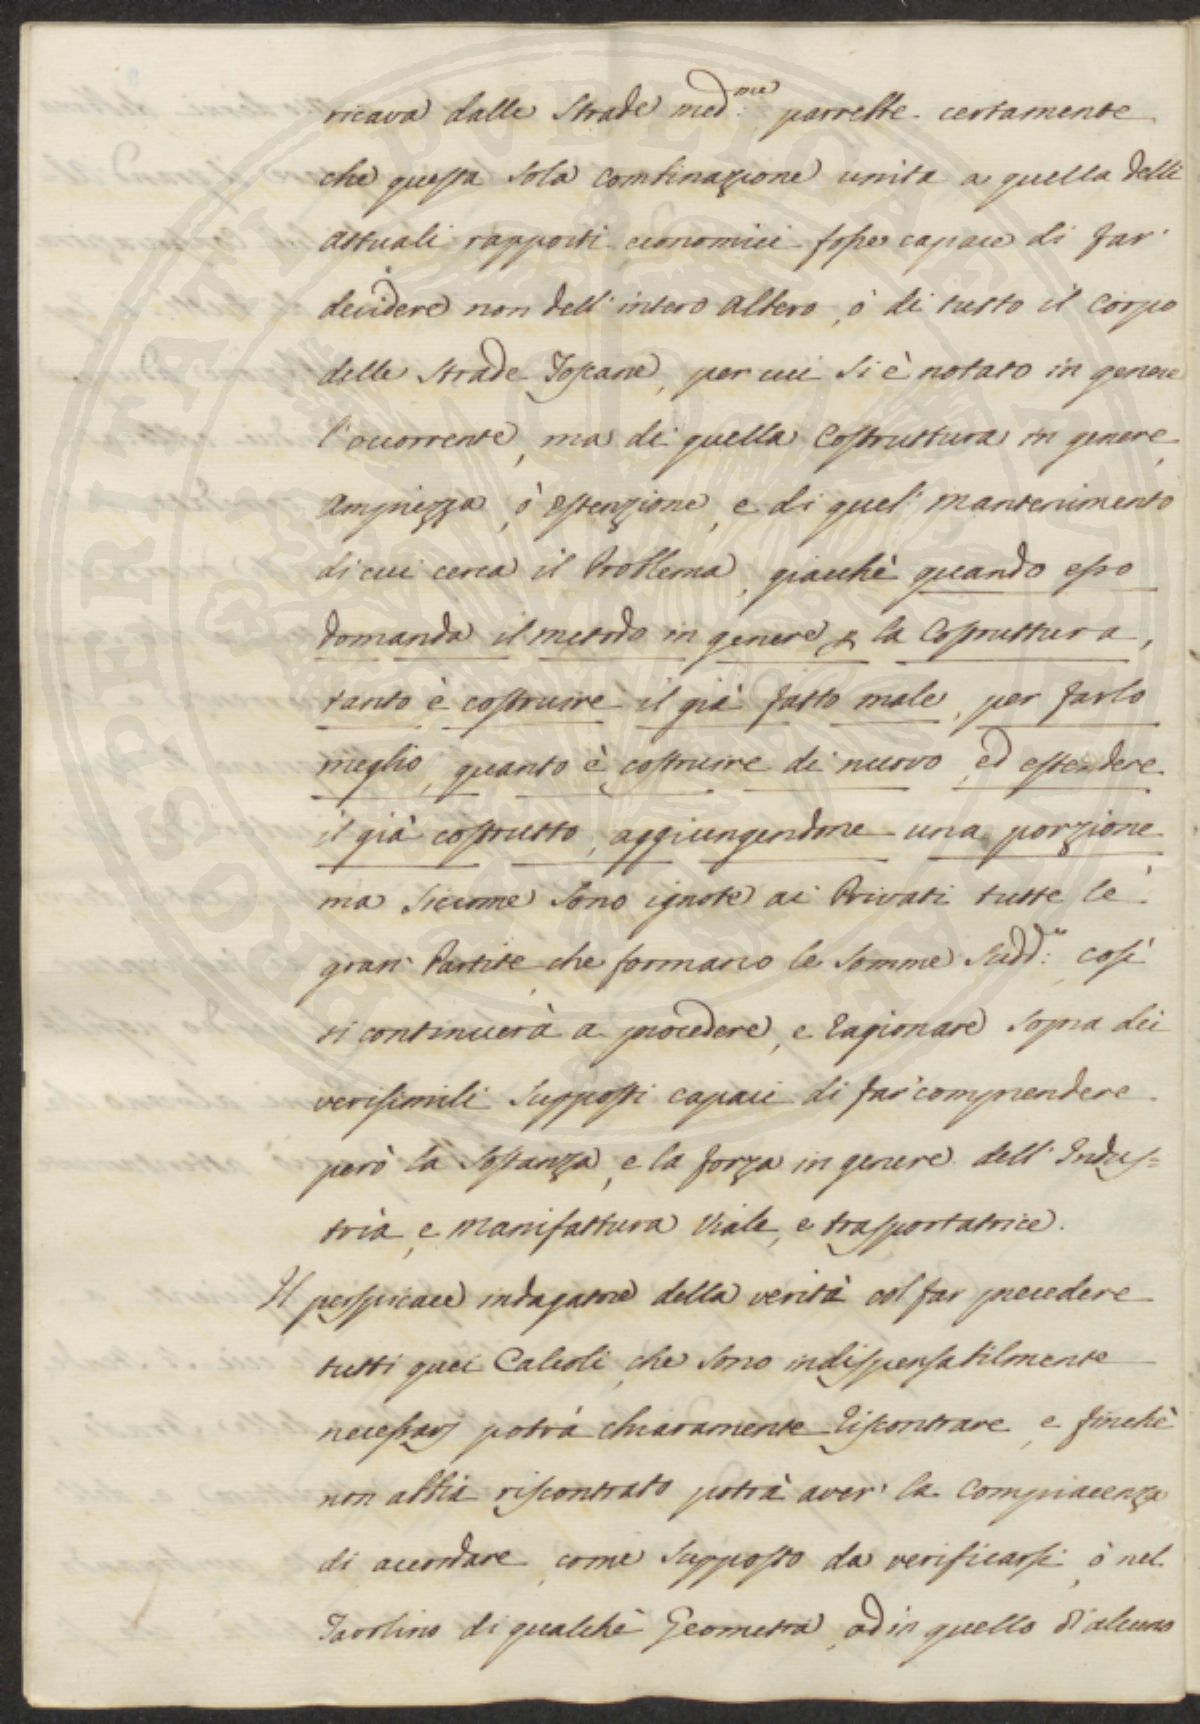 ricava dalle Strade med.me parrebbe certamente
che questa sola combinazione unita a quella delli
attuali rapporti economici fosse capace di far'
decidere non dell'intero albero, ò di tutto il Corpo
delle Strade Toscane, per cui si è notato in genere
l'occorrente, ma di quella Costruttura in genere,
Ampiezza, ò Estenzione, e di quel' mantenimento
di cui cerca il Problema, giacchè quando esso
domanda il metodo in genere p la Costruttura,
tanto è costruire il già fatto male, per farlo
meglio, quanto è costruire di nuovo, ed estendere
il già costrutto, aggiungendone una porzione
ma siccome sono ignote ai Privati tutte le
gran' Partite, che formano le somme sudd.e, così
si continuerà a procedere, e ragionare sopra dei
verisimili supposti capaci di far comprendere
però la sostanza, e la forza in genere dell'Indus=
tria, e manifattura viale, e trasportatrice.
Il perspicace indagatore della verità col far precedere
tutti quei Calcoli, che sono indispensabilmente
necessarj potrà chiaramente riscontrare, e finchè
non abbia riscontrato potrà aver' la compiacenza
di accordare, come supposto da verificarsi, ò nel
Tavolino di qualchè Geometra, od in quello di alcuno
PROSPERITATI PUBLICAE AUGENDAE